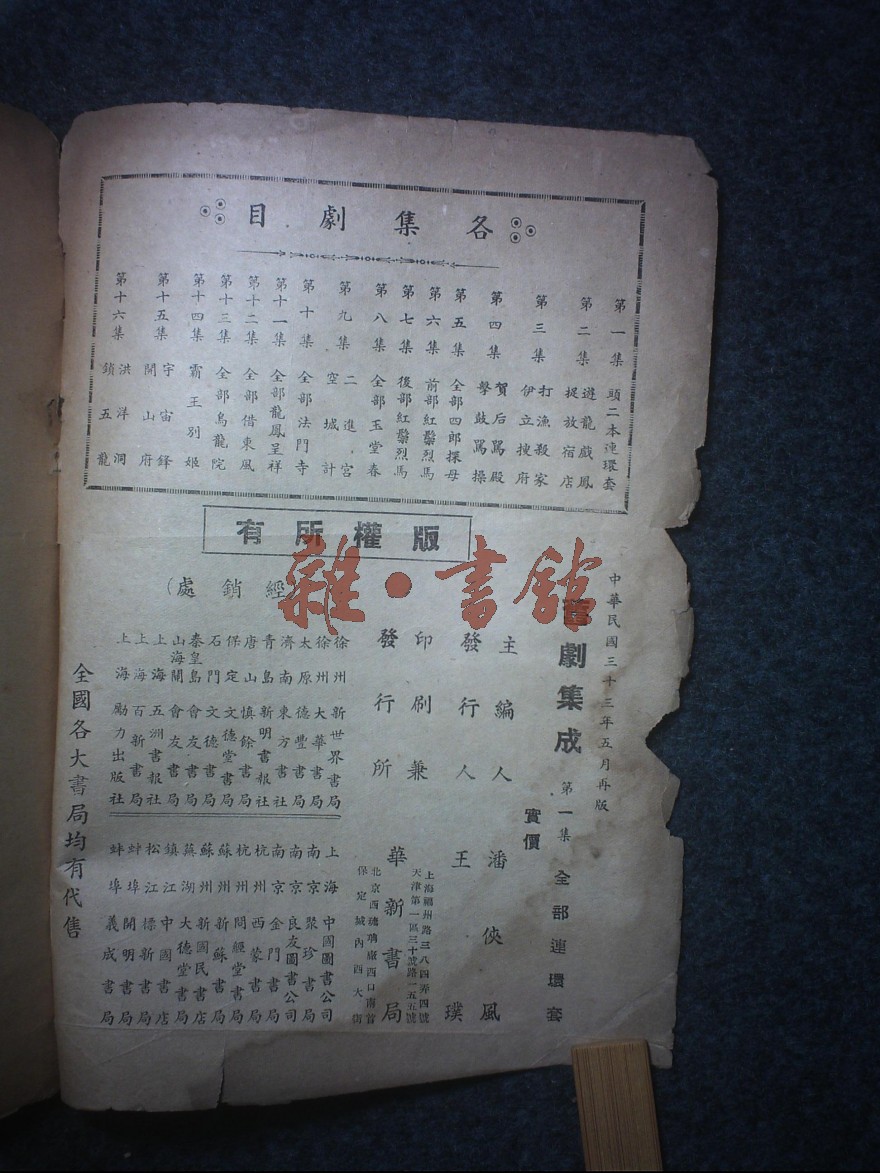 各集劇目
第一集 頭二本連環套
第二集 遊龍戲鳳 捉放宿店
第三集 打漁殺家 伊立搜府
第四集 賀后罵殿 擊鼓罵操
第五集 全部四郎探母
第六集 前部紅鬃烈馬
第七集 後部紅鬃烈馬
第八集 全部玉堂春
第九集 二進宮 空城計
第十集 全部法門寺
第十一集 全部龍鳳呈祥
第十二集 全部借東風
第十三集 全部烏龍院
第十四集 霸王別姬
第十五集 宇宙鋒 開山府
第十六集 洪洋洞 鎖五龍
版權所有
中華民國三十三年五月再版
劇集成 第一集 全部連環套
實價
主編人 潘俠風
發行人 王璞
印刷兼
發行所 華新書局
上海福州路三八四弄四號
天津第一區三十號路一五五號
北京西琉璃廠西口南首
保定城內西大街
經銷處
徐州新世界書局
徐州大華書局
太原德豐書局
濟南東方書社
青島新明書報社
唐山慎餘書局
保定文德堂書局
石門文德書局
秦皇島會友書局
山海關會友書局
上海五洲書報社
上海百新書局
上海勵力出版社
上海中國圖書公司
南京聚珍書局
南京良友圖書公司
南京金門書局
杭州西蒙書局
杭州問經堂書局
蘇州新蘇書局
蘇州新國民書店
蕪湖大德堂書局
鎮江中國書店
松江標新書局
蚌埠開明書局
蚌埠義成書局
全國各大書局均有代售
雜·書館